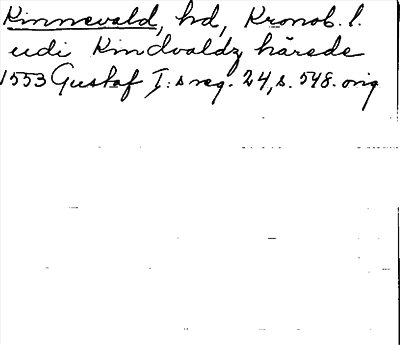 Kinnevald, hd, Kronob. l.
udi Kindvaldz härede
1553 Gustaf I:s reg. 24, s. 548. orig